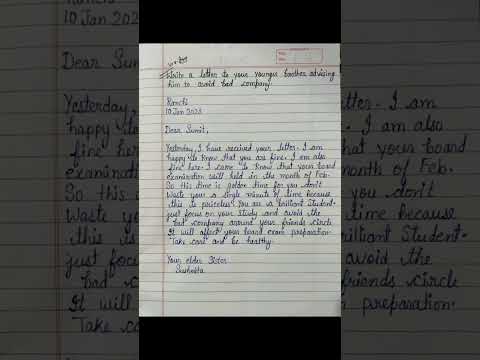 Write a letter to your younger brother advising
him to avoid bad company.
Ranchi
10 Jan 2023
Dear Sumit,
Yesterday, I have received your letter. I am
happy to know that you are fine. I am also
fine here. I come to know that your board
examination will held in the month of Feb.
So this time is golden time for you don't
waste your a single minute of time because
this is priceless. You are a brilliant Student.
just focus on your Study and avoid the
bad company around your friends circle
It will affect your board exam preparation.
Take care and be healthy.
Your elder Sister